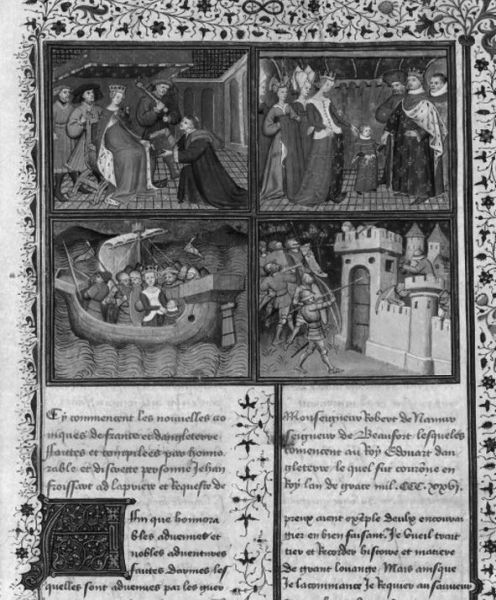 Cy commencent les nouvelles cro
niques de france et dangleterre
faittes et compilees par honno
rable et discrette personne Jehan
froissart ad la priere et Requeste de
Monseigneur Robert de Namur
seigneur de Beaufort lesqueles
comencent au Roy Edouart dan
gleterre le quel fut courone en
Roy lan de grace mil. CCC.XXVI.
Afin que honnora
bles advenues et
nobles adventures
faites darmes les
quelles sont advenues par les guer
preux aient exeple deulx encouraı
gier en bien faisant. Je vueil trait
tier et Recorder histoire et matiere
de grant louange. Mais ainsque
Je la commance Je Requier au sauveur